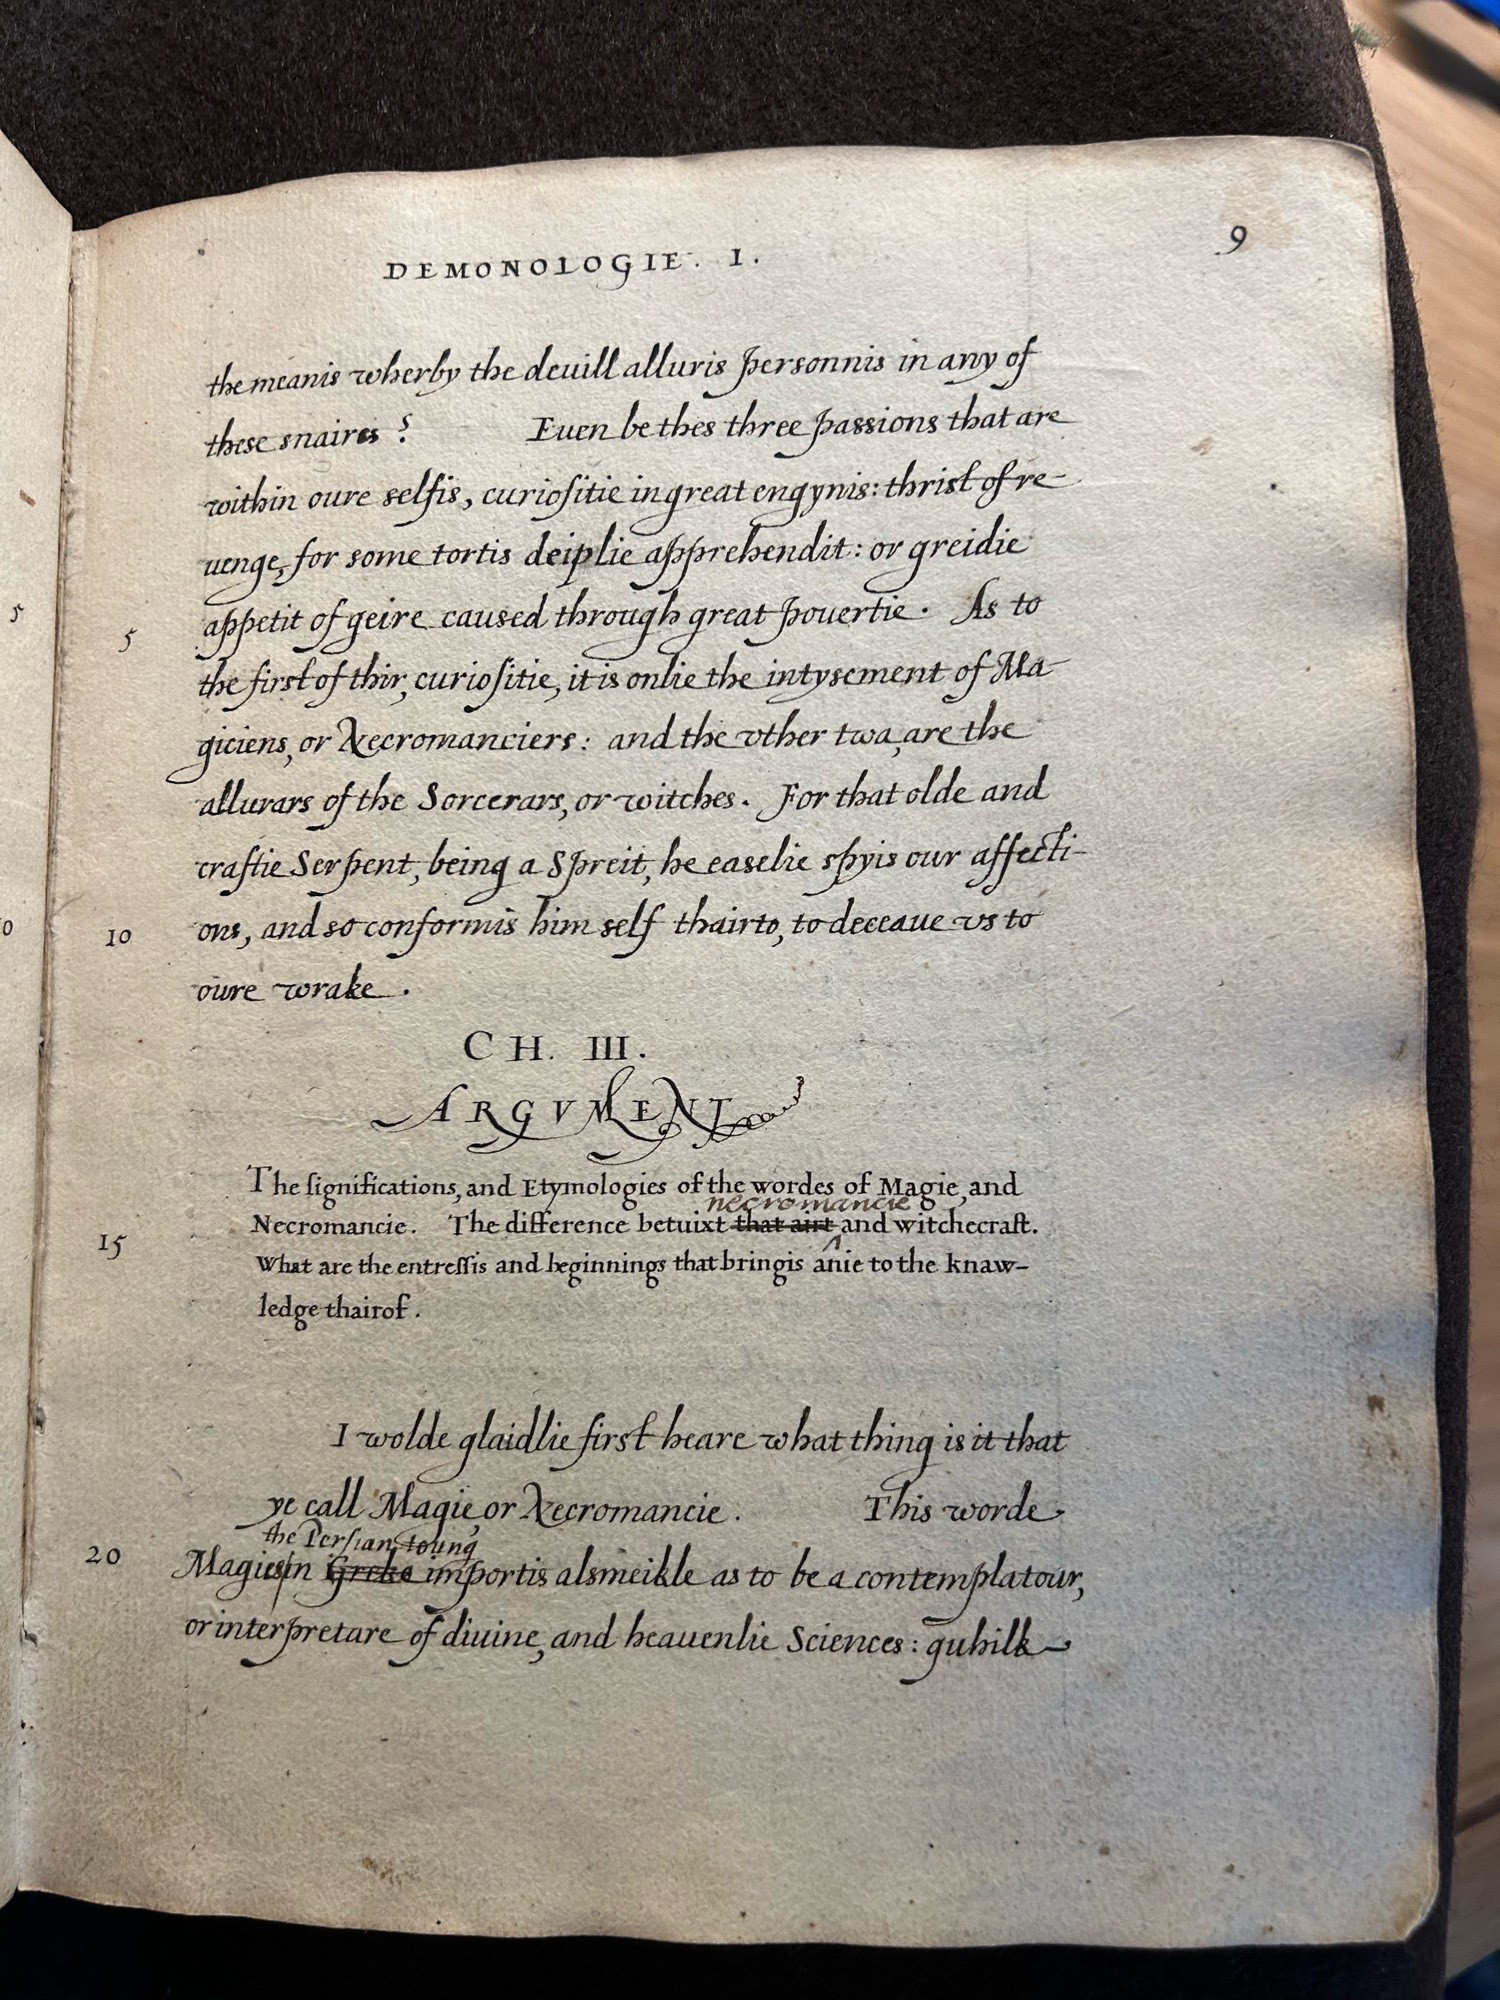 DEMONOLOGIE. I.
9
the meanis wherby the deuill alluris personnis in any of
these snaires ? Euen be thes three passions that are
within oure selfis, curiositie in great engynis: thrist of re-
uenge, for some tortis deiplie apprehendit: or greidie
5 appetit of geire caused through great pouertie. As to
the first of thir, curiositie, it is onlie the intysement of Ma-
giciens, or Necromanciers: and the vther twa, are the
allurars of the Sorcerars, or witches. For that olde and
craftie Serpent, being a Spreit, he easelie spyis our affecti-
10 ons, and so conformis him self thairto, to deceaue vs to
oure wrake.
CH. III.
ARGVMENT
The significations, and Etymologies of the wordes of Magie, and
necromancie
Necromancie. The difference betuixt that airt and witchecraft.
15 What are the entressis and beginnings that bringis anie to the knaw-
ledge thairof.
I wolde glaidlie first heare what thing is it that
ye call Magie, or Necromancie. This worde
the Persian toung
20 Magie in Greke importis alsmeikle as to be a contemplatour,
or interpretare of diuine, and heauenlie Sciences: quhilk
5